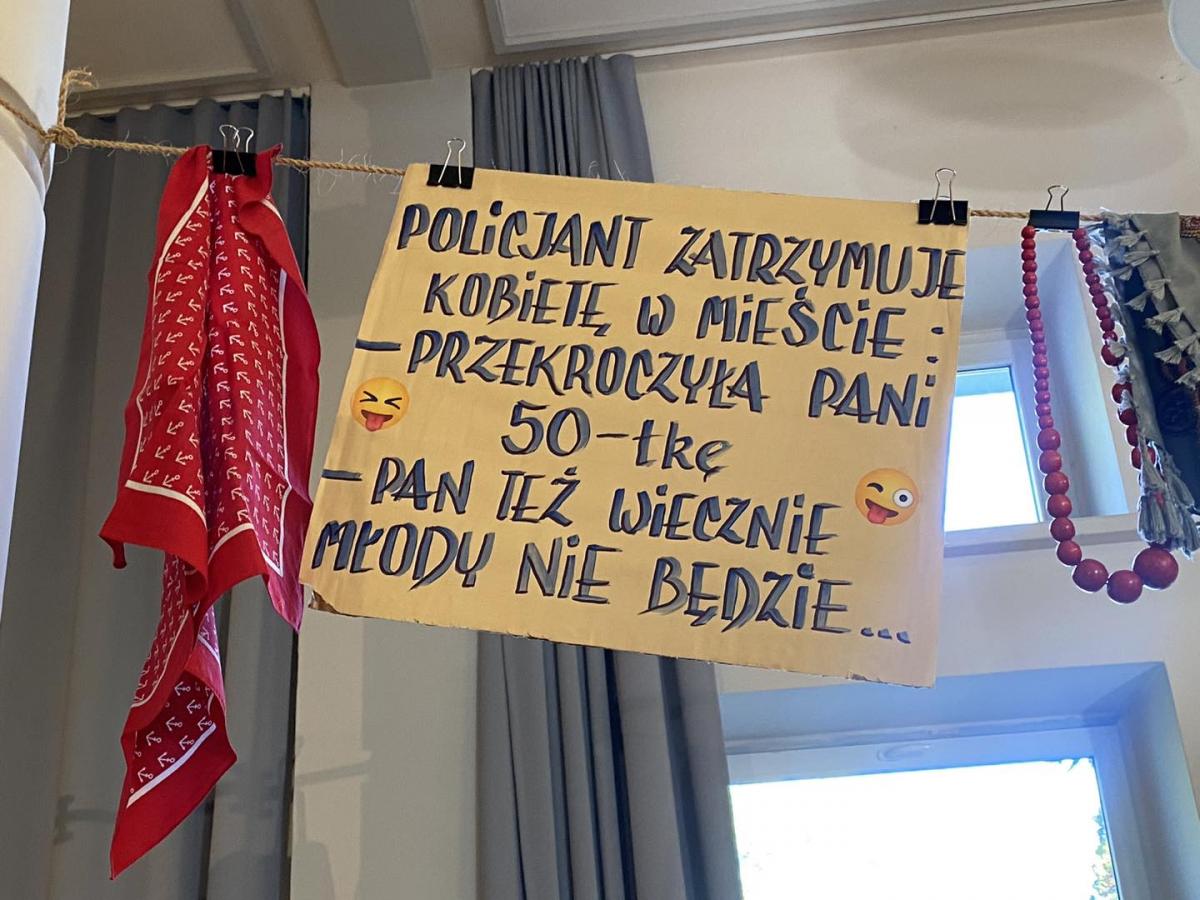 POLiCJANT ZATRZYMUJE
KOBiETĘ W MiEŚCiE :
- PRZEKROCZYŁA PANi
50-tkę
- PAN TEŻ WiECZNiE
MŁODY NiE BĘDZiE...